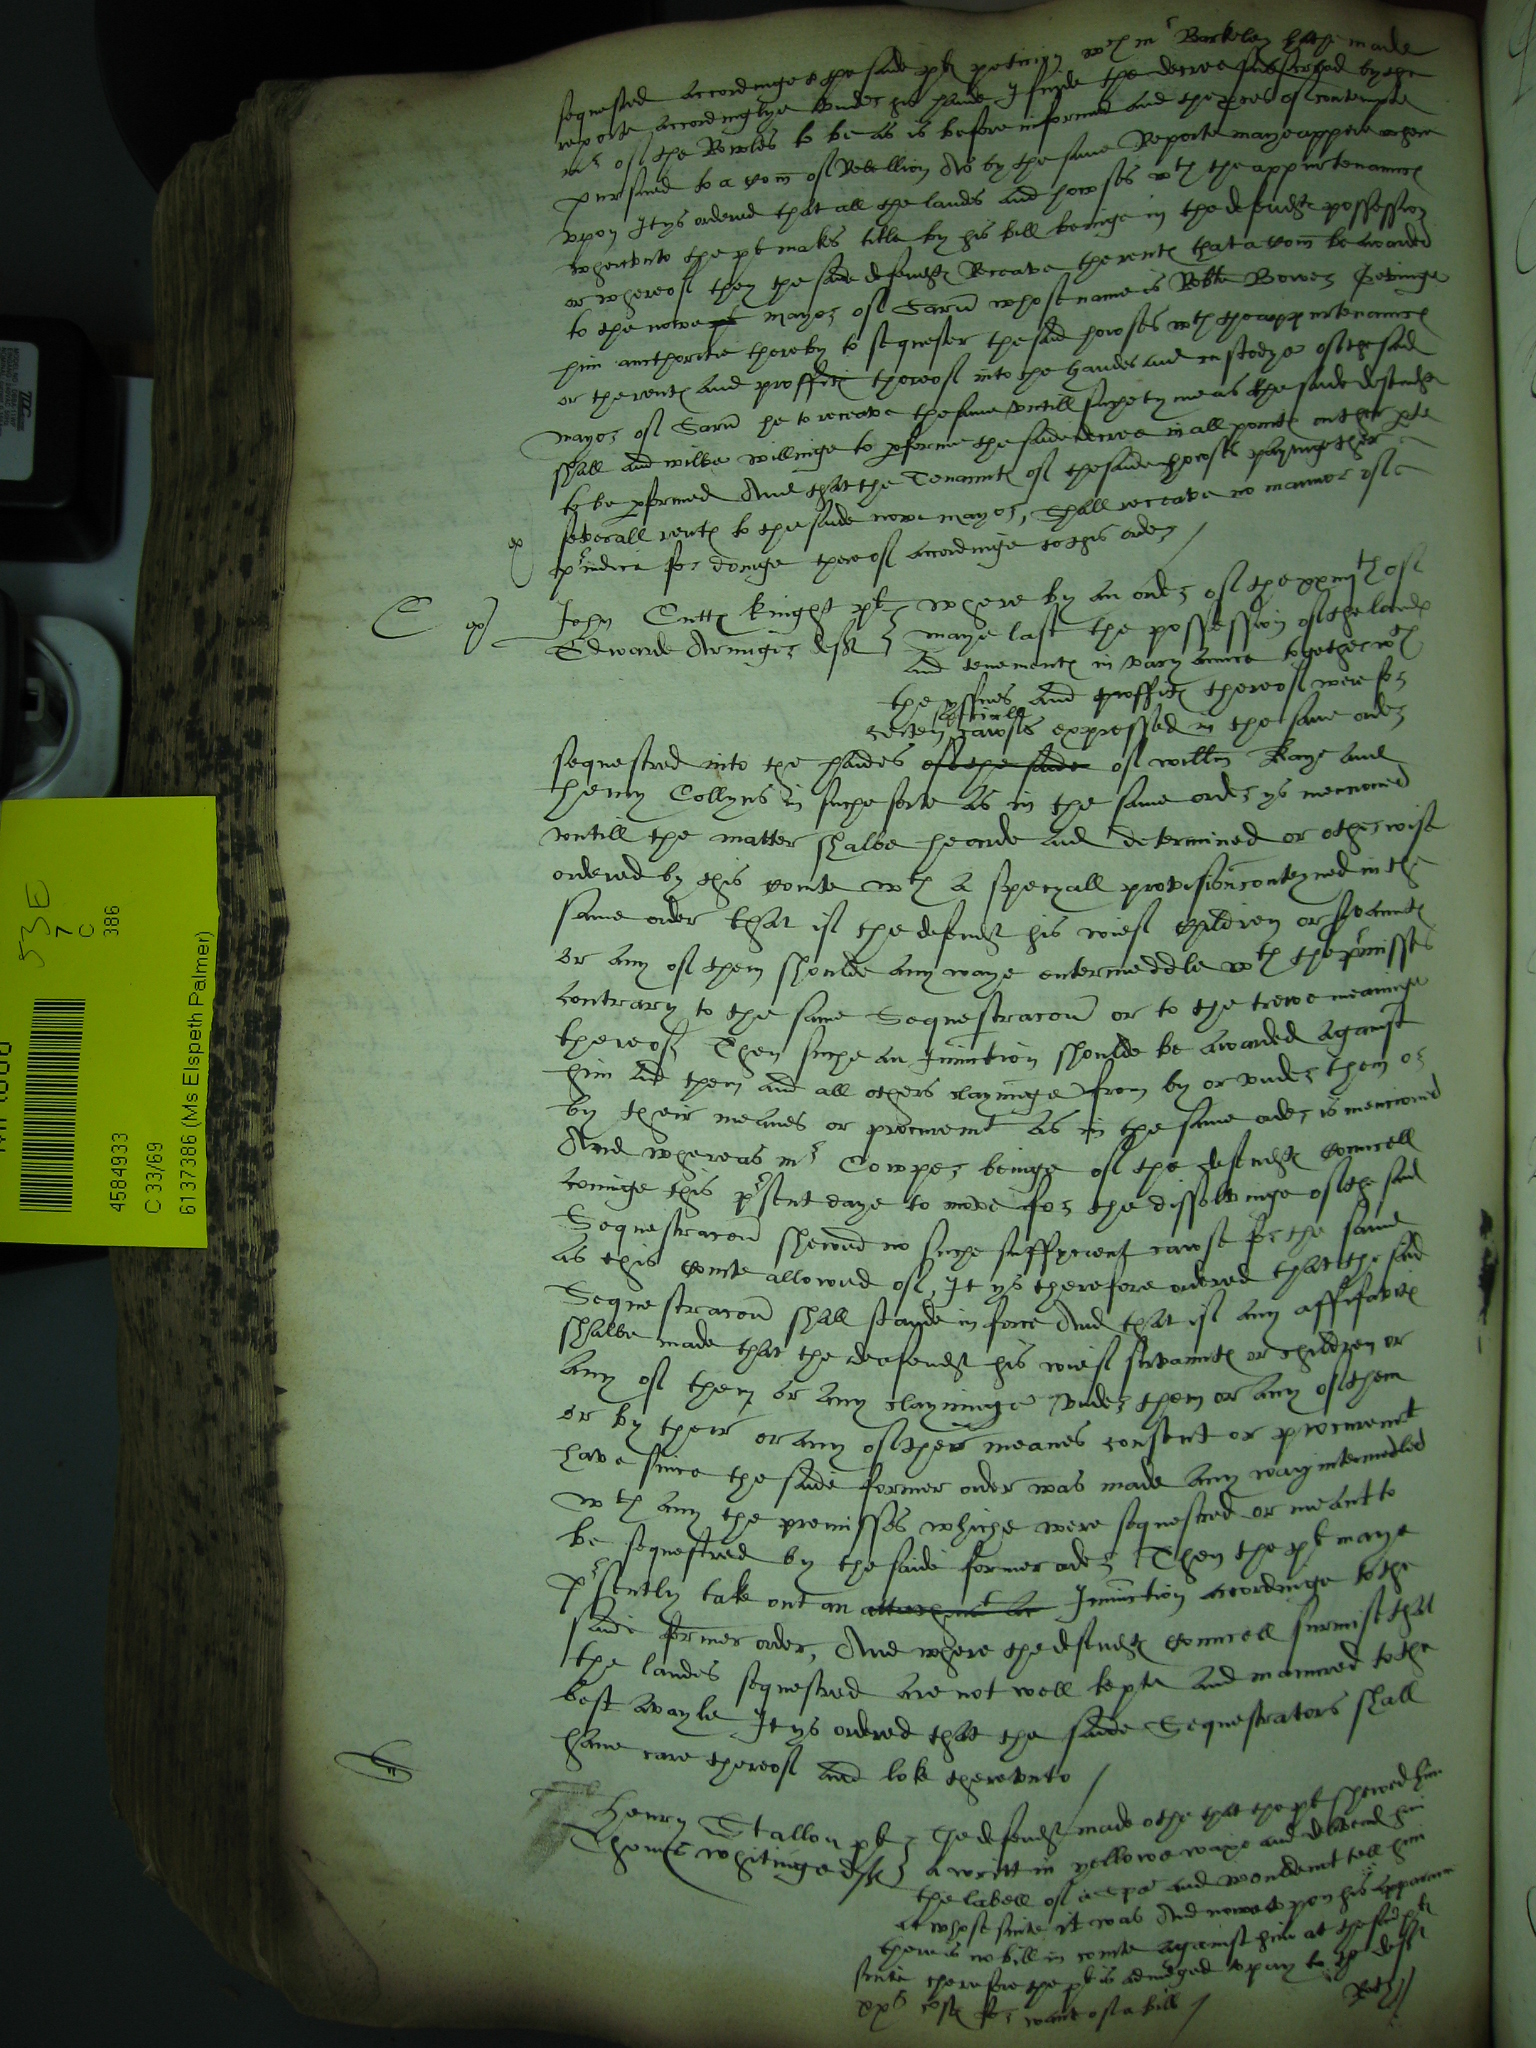 sequestred accordinge to the saide plt peticion wch mr Barkeley hathe made
reporte accordinglye under his hande I finde the decree subscribed by the
mr of the Rowles to be as is before informed and the proces of contempte
pursued to a com of Rebellion As by the same Reporte maye appere where
upon It ys ordered that all the lands and howses wth the appurtenauncs
wherunto the plt maks title by his bill beinge in the defendts possession
or whereof they the saide defendts Receave the rents that a com be awarded
to the nowe plt mayor of Sarum whose name is Robte Bower Gevinge
him aucthoritie thereby to sequester the said howses wth thappurtenauncs
or the rents and proffitts thereof into the handes and custodye of the said
mayor of Sarum he to receave the same untill suche tyme as the saide defendts
shall and wilbe willinge to pforme the saide decree in all points on ther pte
to be pformed And that the Tenaunts of the saide howses payinge ther
severall rents to the saide nowe mayor, shall receave no manner of
priudice for doinge thereof accordinge to this order /
ex
C ex John Cutts knight plt Where by an order of the xxiiijth of
Edwarde Armiger deft maye last the possession of the lands
and tenements in varyaunce together wth
the yssues and proffitts thereof were for
certen speciall cawses expressed in the same order
sequestred into the handes of the saide of willm Kaye and
Henry Collyns in suche sorte as in the same order ys mencioned
untill the matter shalbe hearde and determined or otherwise
ordered by this courte wth a specyall provision conteyned in the
same order that if the defendt his wief children or srvaunts
or any of them shoulde any waye entermeddle wth the prmisses
contrary to the same Sequestracon or to the trewe meaninge
thereof Then suche an Iniunction shoulde be awarded against
him and them and all others clayminge from by or under them or
by their meanes or procuremt as in the same order is mencioned
And whereas mr Cowper beinge of the defendts councell
cominge this prsent daye to move for the dissolvinge of the said
Sequestracon shewed no suche suffycient cawse for the same
as this courte allowed of, It ys therefore ordered that the said
Sequestracon shall stande in force And that if any affidavits
shalbe made that the deafendt his wief servaunts or children or
any of them or any clayminge under them or any of them
or by their or any of their meanes consent or procuremt
have since the saide former order was made any way intermedled
wth any the premisses whiche were sequestred or meant to
be sequestred by the saide former order Then the plt maye
prsently take out an attachmt or Iniunction accordinge to the
saide former order, And where the defendts councell surmise that
the landes sequestred are not well kepte and manured to the
best avayle It ys ordered that the saide Sequestrators shall
have care thereof and loke therunto /
Henry Stallon plt The defendt made othe that the plt shewed him
Thoms whitinge deft a writt in yellowe waxe and delivered him
the labell of and would not tell him
at whose suite it was And nowe upon his apparance
there is no bill in courte against him at the said plts
suite therefore the plt is adiudged to pay to the deft
xxs costs for want of a bill /
4584933
C 33/69
6137386 (Ms Elspeth Palmer)
53E
7
C
386